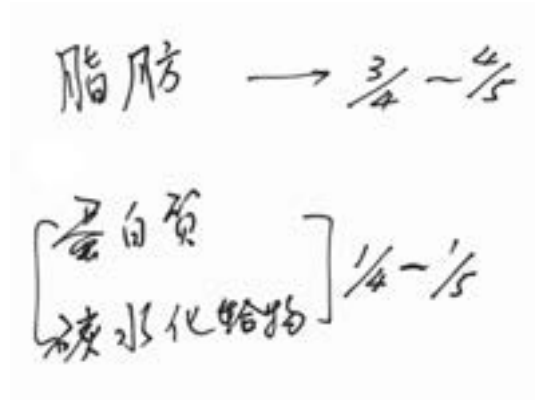 脂肪 → 3/4 ~ 4/5
蛋白质
碳水化合物
1/4 ~ 1/5